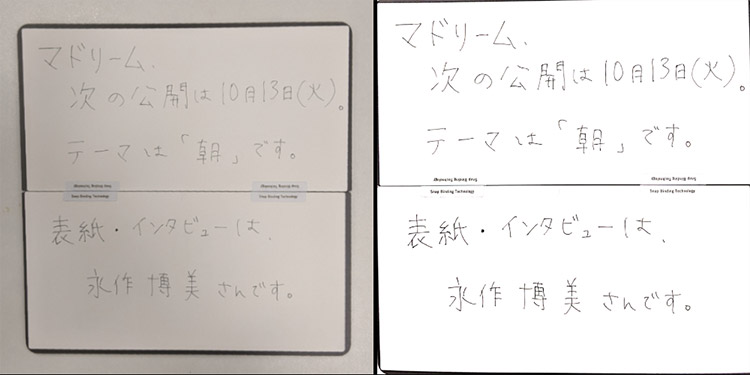 マドリーム、
次の公開は10月13日(火)。
テーマは「朝」です。
Snap Binding Technology
Snap Binding Technology
Snap Binding Technology
Snap Binding Technology
表紙・インタビューは、
永作博美さんです。
マドリーム、
次の公開は10月13日(火)。
テーマは「朝」です。
Snap Binding Technology
Snap Binding Technology
Snap Binding Technology
表紙・インタビューは、
永作博美さんです。